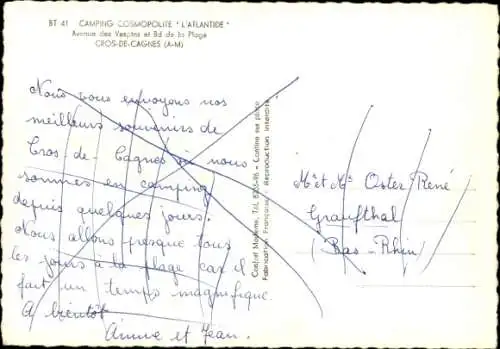 BT 41 CAMPING COSMOPOLITE "L'ATLANTIDE"
Avenue des Vespins et Bd de la Plage
CROS-DE-CAGNES (A-M)
Nous vous envoyons nos
meilleurs souvenirs de
Cros-de-Cagnes où nous
sommes en camping
depuis quelques jours.
Nous allons presque tous
les jours à la plage car il
fait un temps magnifique.
A bientôt
Aimée et Jean.
Fabrication Française - Reproduction interdite
M et Me Oster René
Graufthal
(Bas-Rhin)